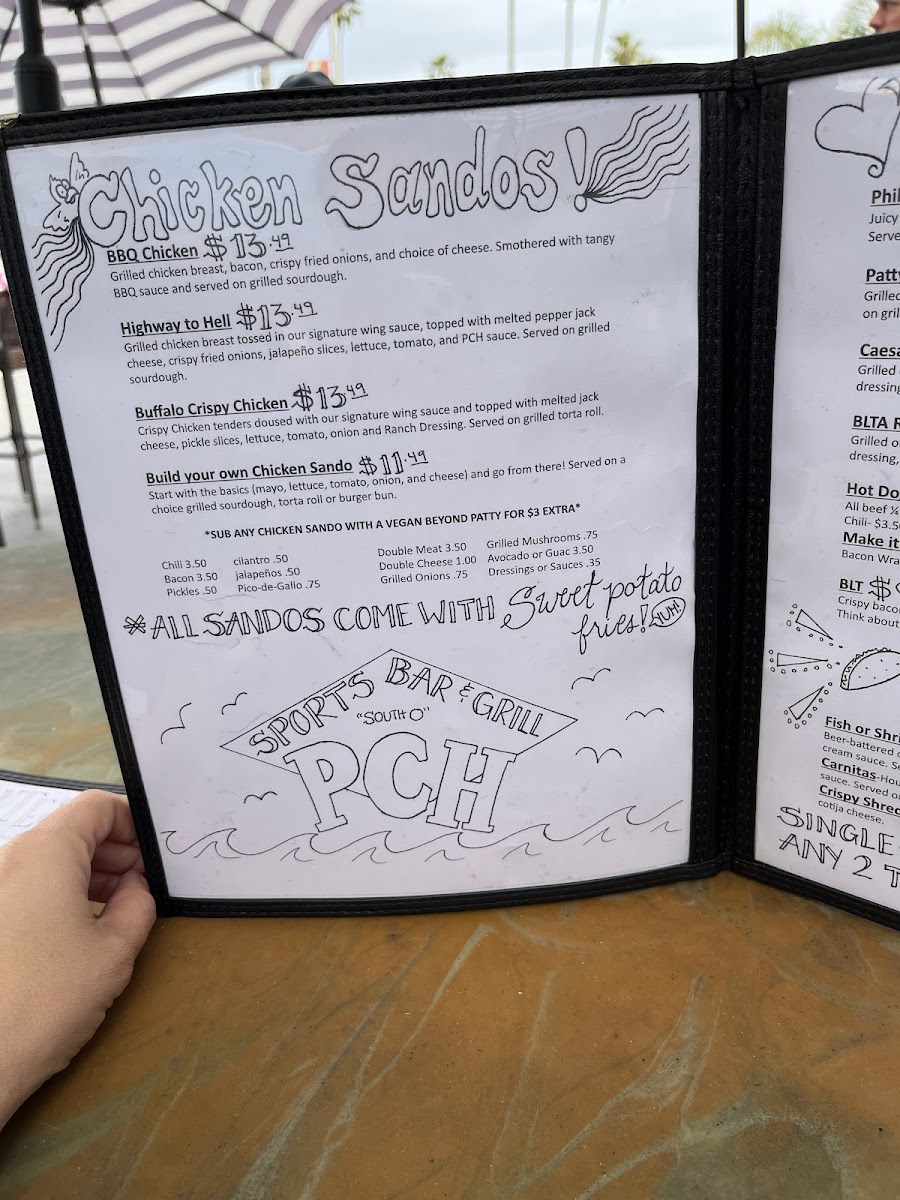 Chicken Sandos!
BBQ Chicken $13.49
Grilled chicken breast, bacon, crispy fried onions, and choice of cheese. Smothered with tangy
BBQ sauce and served on grilled sourdough.
Highway to Hell $13.49
Grilled chicken breast tossed in our signature wing sauce, topped with melted pepper jack
cheese, crispy fried onions, jalapeño slices, lettuce, tomato, and PCH sauce. Served on grilled
sourdough.
Buffalo Crispy Chicken $13.49
Crispy Chicken tenders doused with our signature wing sauce and topped with melted jack
cheese, pickle slices, lettuce, tomato, onion and Ranch Dressing. Served on grilled torta roll.
Build your own Chicken Sando $11.49
Start with the basics (mayo, lettuce, tomato, onion, and cheese) and go from there! Served on a
choice grilled sourdough, torta roll or burger bun.
*SUB ANY CHICKEN SANDO WITH A VEGAN BEYOND PATTY FOR $3 EXTRA*
Chili 3.50 cilantro .50 Double Meat 3.50 Grilled Mushrooms .75
Bacon 3.50 jalapeños .50 Double Cheese 1.00 Avocado or Guac 3.50
Pickles .50 Pico-de-Gallo .75 Grilled Onions .75 Dressings or Sauces .35
*ALL SANDOS COME WITH Sweet potato
fries! YUM!
SPORTS BAR & GRILL
"SOUTH O"
PCH
Juicy
Serve
Patty
Grilled
on gril
Caesa
Grilled
dressing
BLTA R
Grilled o
dressing,
Hot Do
All beef ¼
Chili- $3.50
Make it
Bacon Wra
BLT $
Crispy bacon
Think about
Fish or Shri
Beer-battered
cream sauce. Se
Carnitas-Hou
sauce. Served on
Crispy Shred
cotija cheese.
SINGLE
ANY 2 T